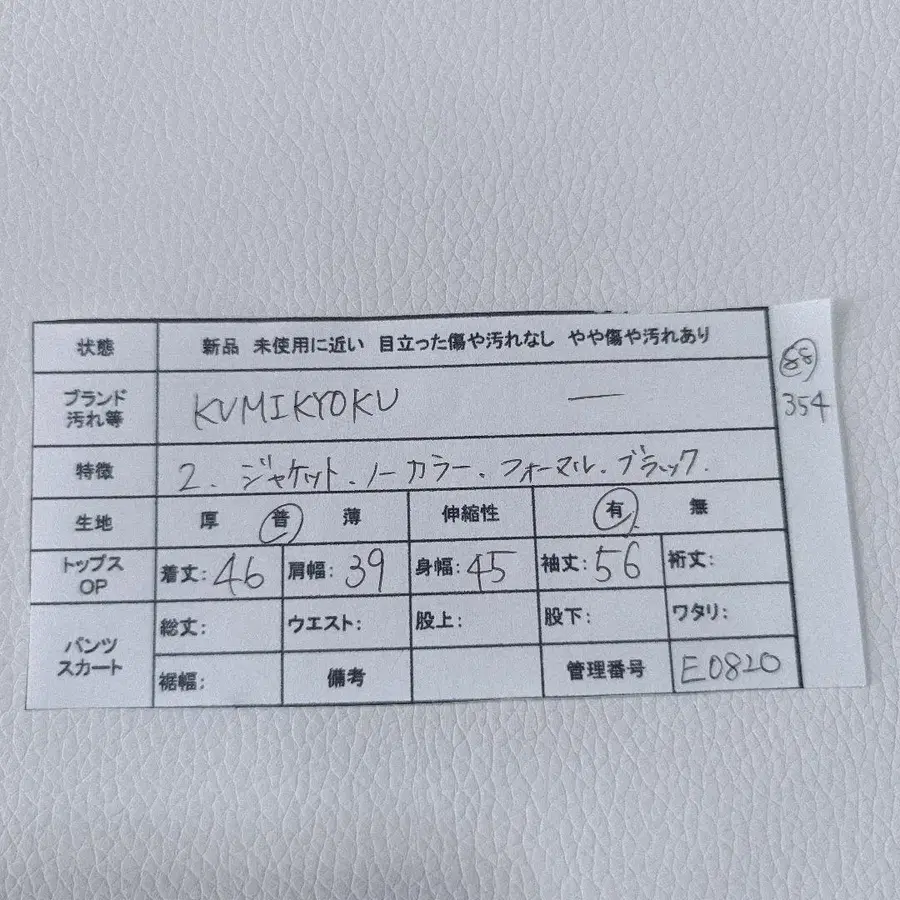 状態 新品 未使用に近い 目立った傷や汚れなし やや傷や汚れあり
88
354
ブランド
汚れ等
KUMIKYOKU —
特徴 2. ジャケット.ノーカラー.フォーマル.ブラック.
生地 厚 普 薄 伸縮性 有 無
トップス
OP
着丈:46 肩幅:39 身幅:45 袖丈:56 裄丈:
パンツ
スカート
総丈: ウエスト: 股上: 股下: ワタリ:
裾幅: 備考 管理番号 E0820